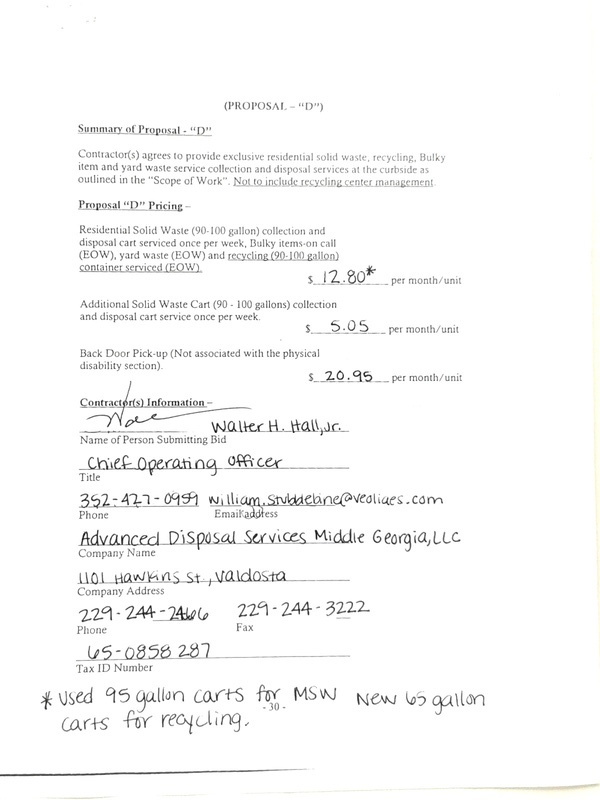 (PROPOSAL – “D”)
Summary of Proposal - “D”
Contractor(s) agrees to provide exclusive residential solid waste, recycling, Bulky
item and yard waste service collection and disposal services at the curbside as
outlined in the “Scope of Work”. Not to include recycling center management.
Proposal “D” Pricing –
Residential Solid Waste (90-100 gallon) collection and
disposal cart serviced once per week, Bulky items-on call
(EOW), yard waste (EOW) and recycling (90-100 gallon)
container serviced (EOW).
$ 12.80* per month/unit
Additional Solid Waste Cart (90 - 100 gallons) collection
and disposal cart service once per week.
$ 5.05 per month/unit
Back Door Pick-up (Not associated with the physical
disability section).
$ 20.95 per month/unit
Contractor(s) Information –
Walter H. Hall, Jr.
Name of Person Submitting Bid
Chief Operating Officer
Title
352-427-0959 william.stubbeline@veoliaes.com
Phone Email address
Advanced Disposal Services Middle Georgia, LLC
Company Name
1101 Hawkins St., Valdosta
Company Address
229-244-2466 229-244-3222
Phone Fax
65-0858287
Tax ID Number
* Used 95 gallon carts for MSW New 65 gallon
- 30 -
carts for recycling.